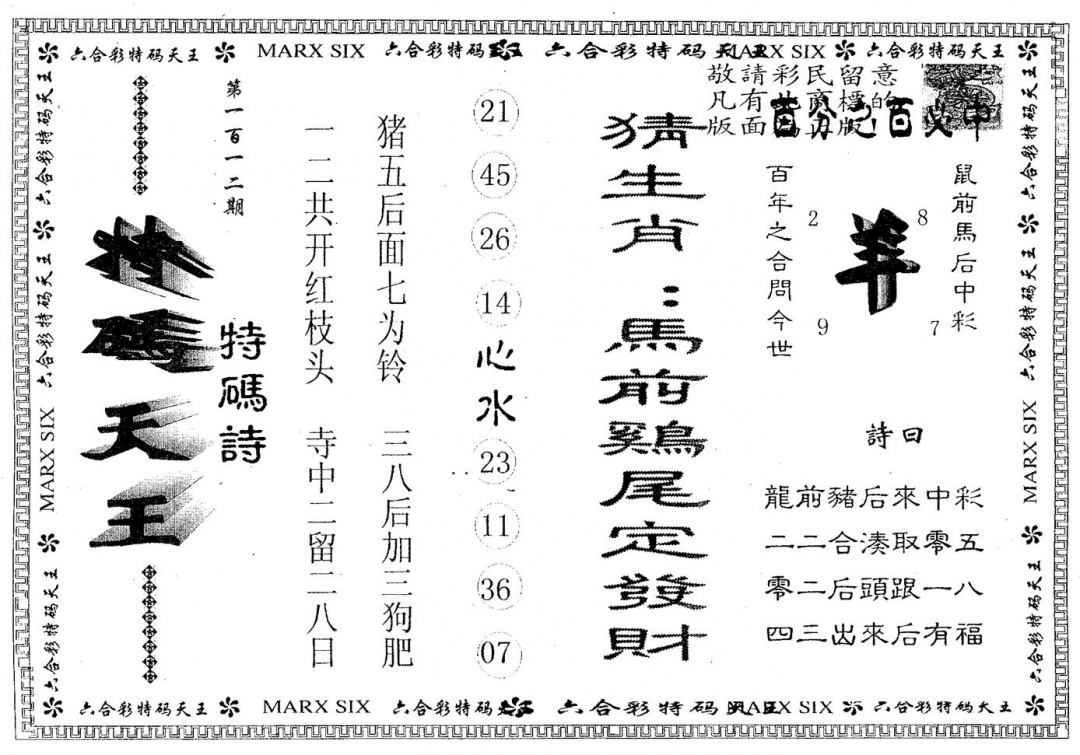 六合彩特码天王 MARX SIX 六合彩特码 六合彩特码天王 MARX SIX 六合彩特码天王
敬請彩民留意
凡有
版面
百分之百必中
第一百一二期
特碼天王
特碼詩
一二共开红枝头 寺中二留二八日
猪五后面七为铃 三八后加三狗肥
21
45
26
14
心水
23
11
36
07
猜生肖：馬前鷄尾定發財
鼠前馬后中彩
百年之合問今世
2 8
羊
9 7
詩曰
龍前豬后來中彩
二二合湊取零五
零二后頭跟一八
四三出來后有福
六合彩特码天王 MARX SIX 六合彩特码天王
六合彩特码天王 MARX SIX 六合彩特码天王
六合彩特码天王 MARX SIX 六合彩特码 六合彩特码天王 MARX SIX 六合彩特码天王